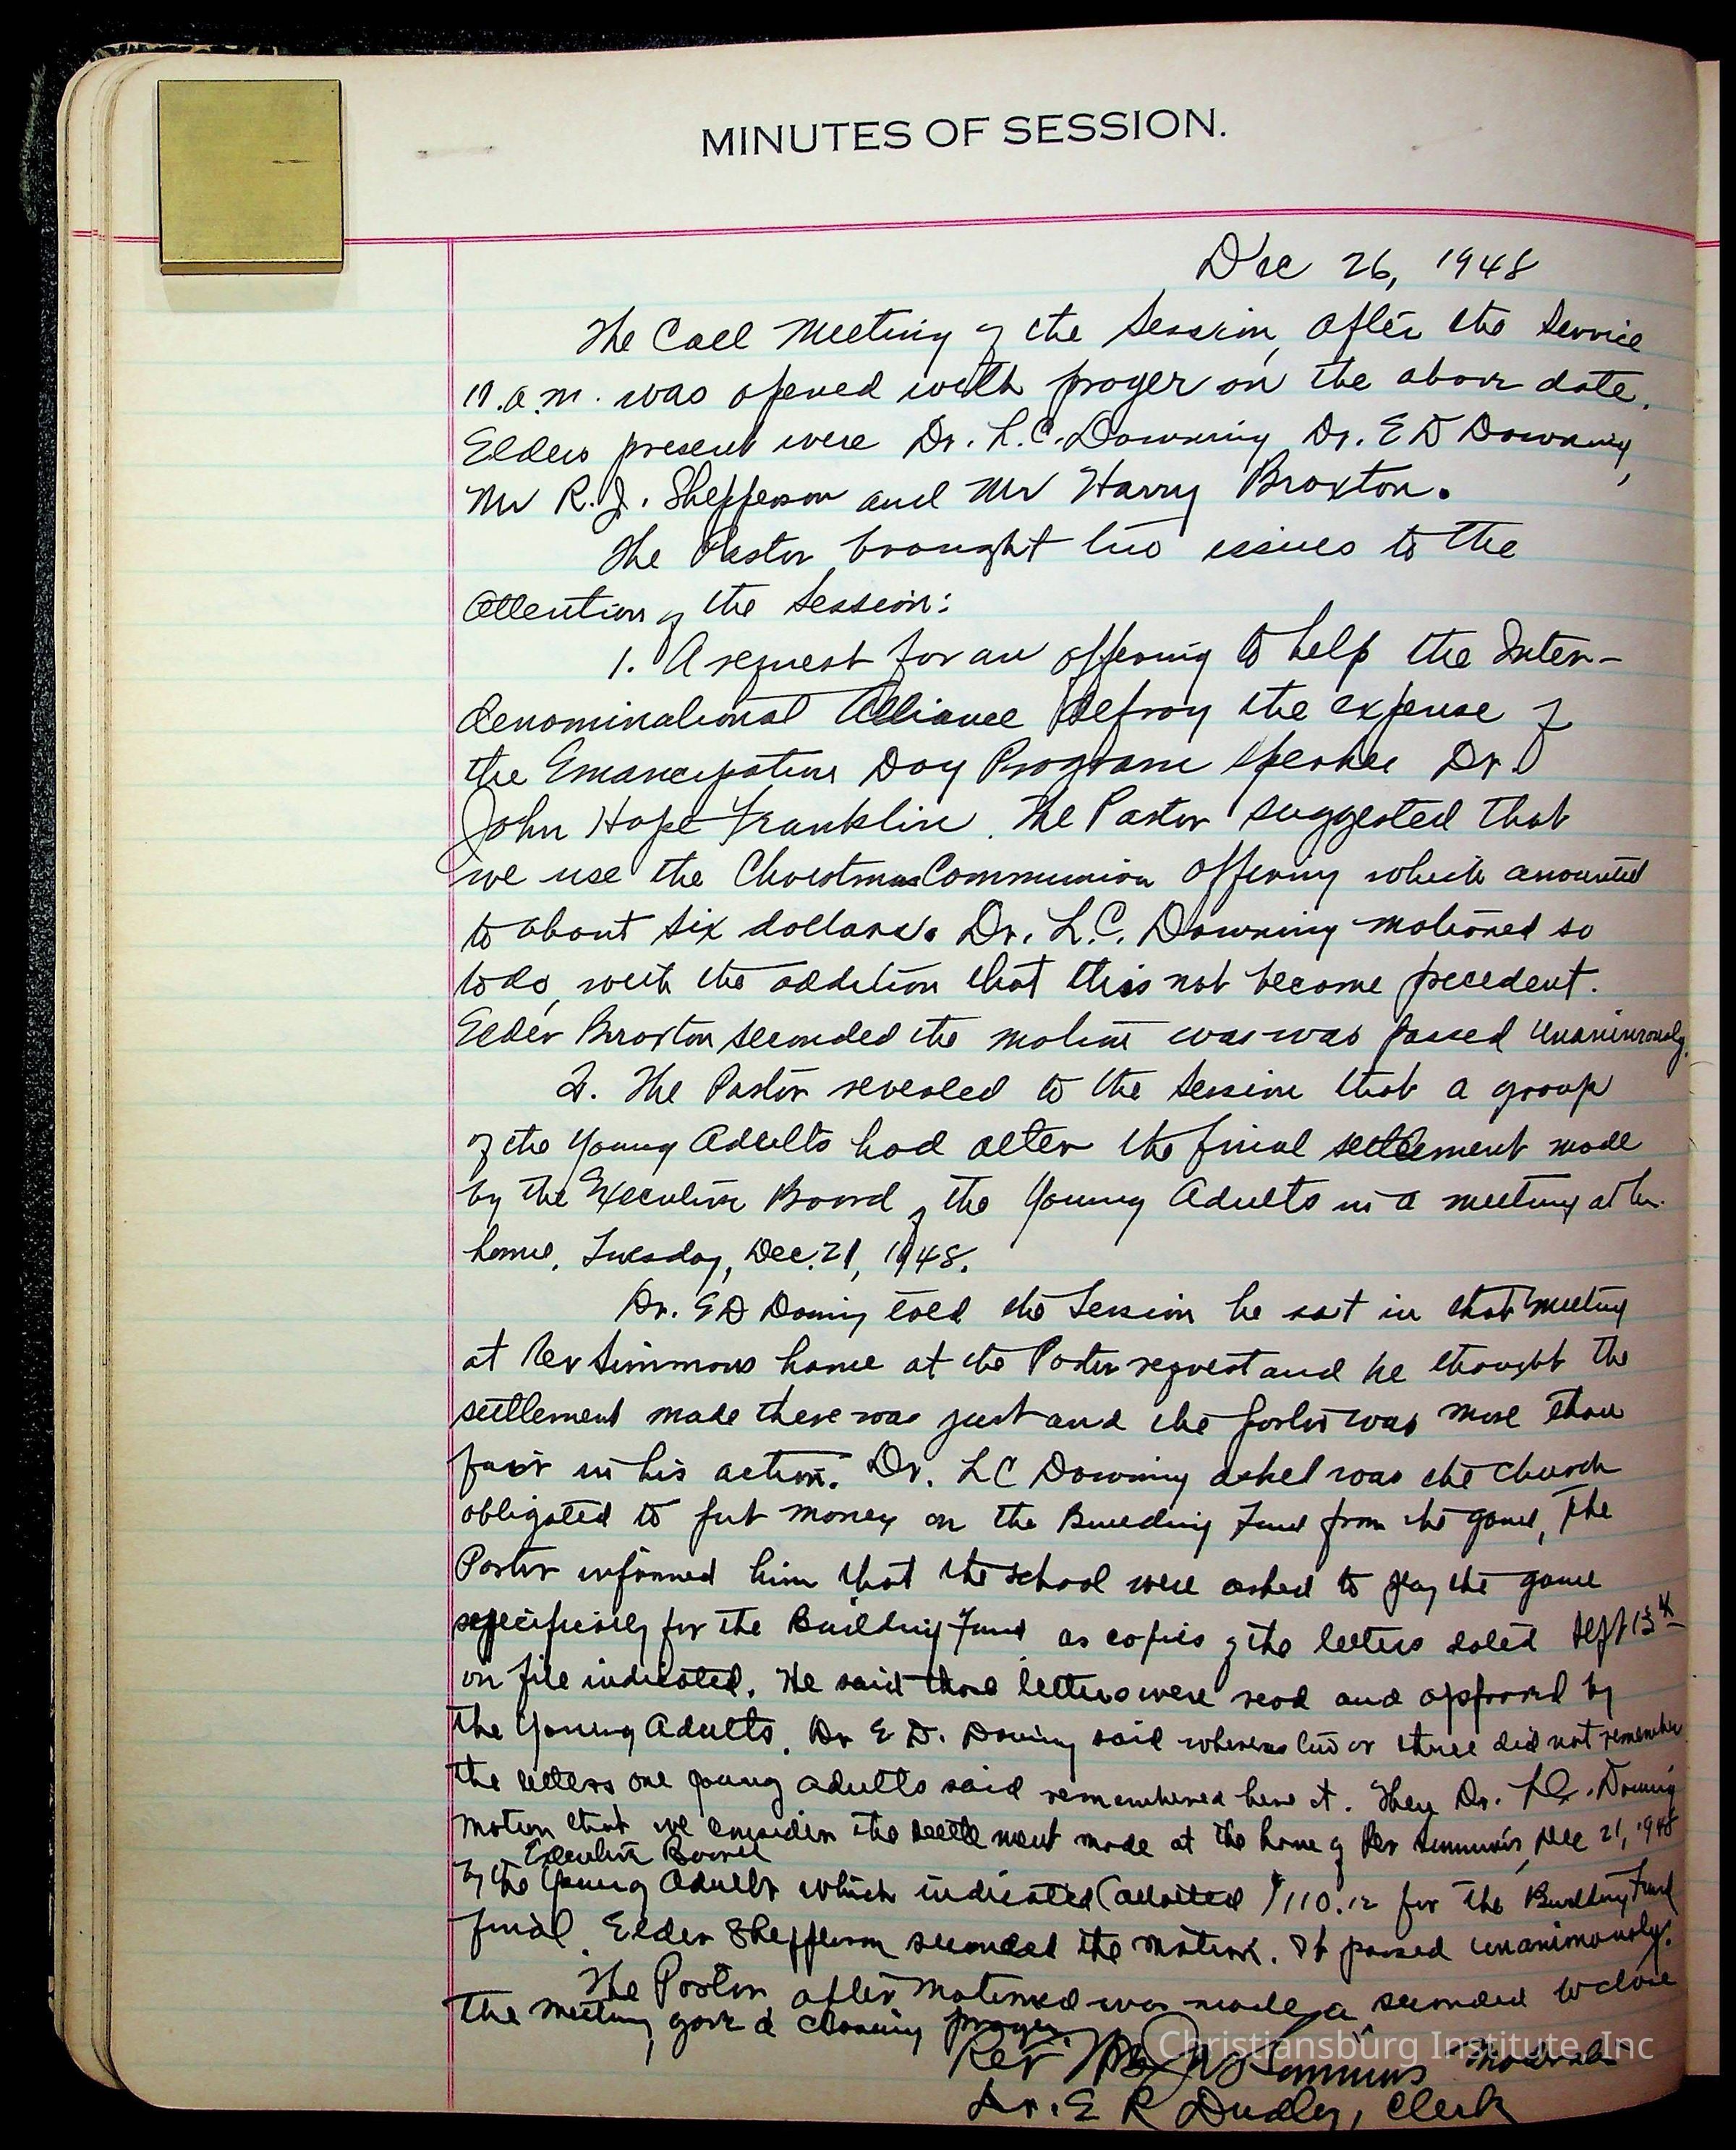 MINUTES OF SESSION.
Dec 26, 1948
The Call Meeting of the Session, after the Service
11.a.m. was opened with prayer on the above date.
Elders present were Dr. L.C. Downing Dr. E D Downing,
Mr R.J. Shepperson and Mr Harry Broxton.
The Pastor brought two issues to the
attention of the Session:
1. A request for an offering to help the Inter-
denominational Alliance defray the expense of
the Emancipation Day Program speaker Dr.
John Hope Franklin. The Pastor suggested that
we use the Christmas Communion offering which amounted
to about six dollars. Dr. L.C. Downing motioned so
to do, with the addition that this not become precedent.
Elder Broxton seconded the motion was was passed unanimously.
2. The Pastor revealed to the Session that a group
of the Young Adults had alter the final settlement made
by the Executive Board of the Young Adults in a meeting at his
home, Tuesday, Dec. 21, 1948.
Dr. E D Downing told the Session he sat in that meeting
at Rev Simmons home at the Pastor request and he thought the
settlement made there was just and the Pastor was more than
fair in his action. Dr. L C Downing asked was the church
obligated to put money on the Building Fund from the game, The
Pastor informed him that the school were asked to play the game
specifically for the Building Fund as copies of the letters dated Sept 13th
on file indicated. He said those letters were read and approved by
the Young Adults. Dr E. D. Downing said whereas two or three did not remember
the letters one young adults said remembered it. Then Dr. L.C. Downing
motion that we consider the settlement made at the home of Rev Simmons, Dec 21, 1948
Executive Board
by the Young Adults which indicated (allotted) $110.12 for the Building Fund
final. Elder Shepperson seconded the motion. It passed unanimously.
The Pastor after motioned was made, a seconded to close
the meeting gave a closing prayer.
Rev Simmons Moderator
Dr. E R Dudley, Clerk
Christiansburg Institute, Inc